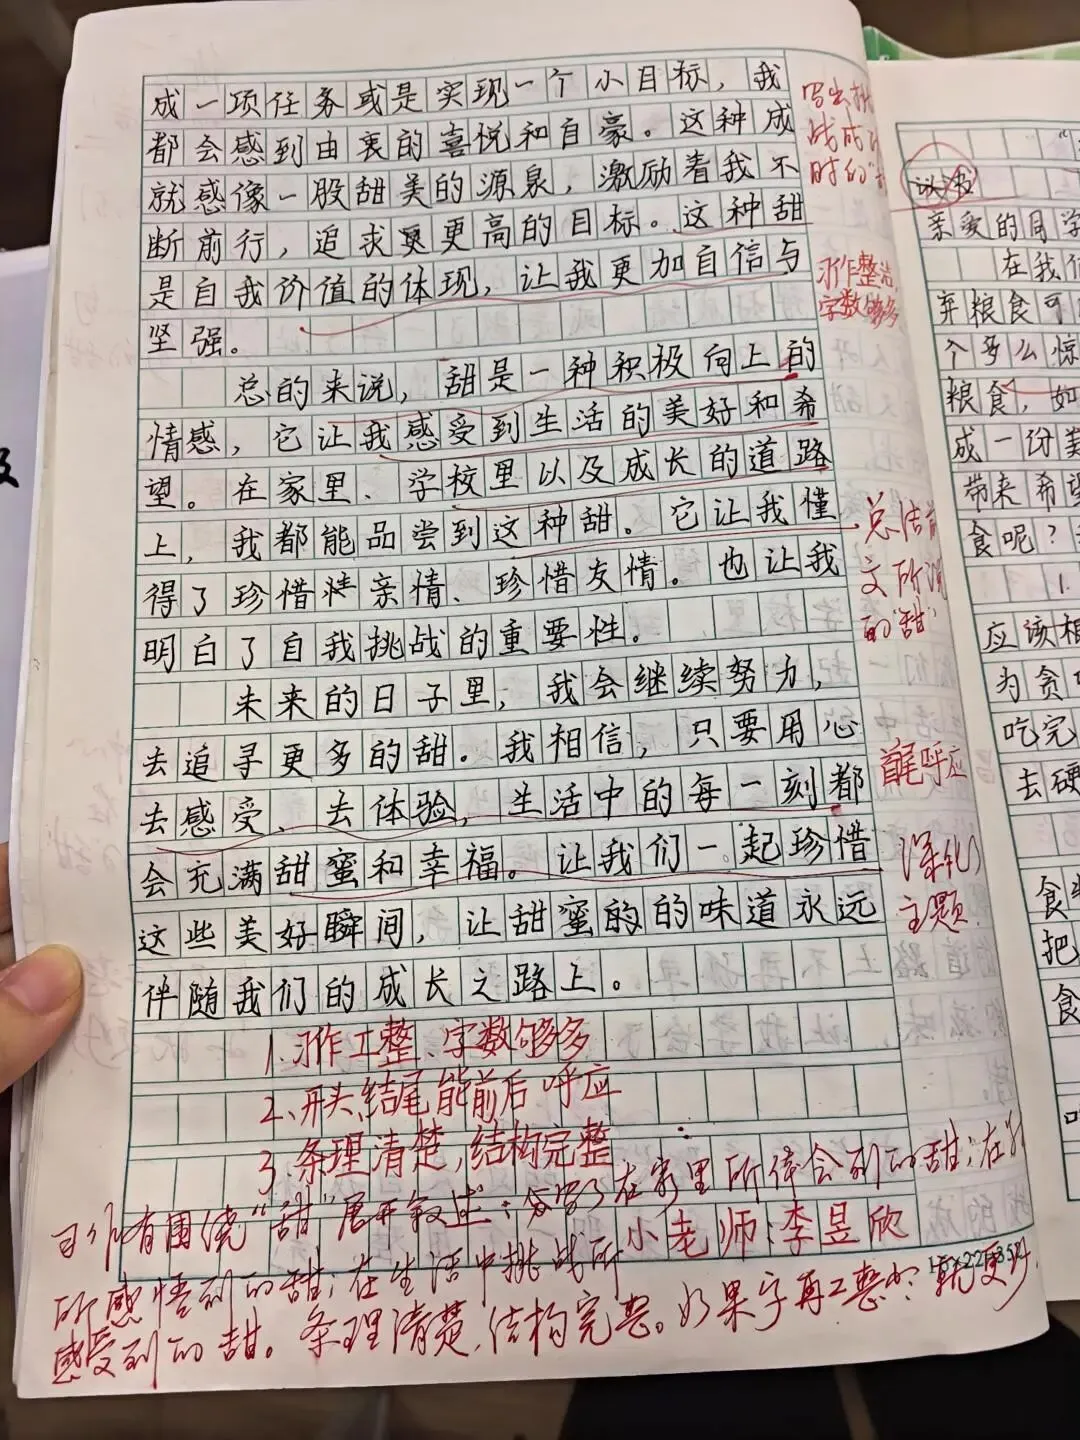 成一项任务或是实现一个小目标，我
都会感到由衷的喜悦和自豪。这种成
就感像一股甜美的源泉，激励着我不
断前行，追求更更高的目标。这种甜
是自我价值的体现，让我更加自信与
坚强。
总的来说，甜是一种积极向上的
情感，它让我感受到生活的美好和希
望。在家里、学校里以及成长的道路
上，我都能品尝到这种甜。它让我懂
得了珍惜亲情、珍惜友情。也让我
明白了自我挑战的重要性。
未来的日子里，我会继续努力，
去追寻更多的甜。我相信，只要用心
去感受、去体验，生活中的每一刻都
会充满甜蜜和幸福。让我们一起珍惜
这些美好瞬间，让甜蜜的的味道永远
伴随我们的成长之路上。
写出挑
战成
时的
习作整洁，
字数够多
总结前
文所说
的"甜"
首尾呼应
深化
主题
1.习作工整、字数够多
2、开头结尾能前后呼应
3.条理清楚，结构完整
小老师：李昱欣
习作有围绕"甜"展开叙述：分写了在家里所体会到的甜；在
所感悟到的甜；在生活中挑战所
感受到的甜。条理清楚，结构完整。如果字再工整些，就更好
议活
亲爱的同学
在我们
弃粮食可
个多么惊
粮食，如
成一份美
带来希望
食呢？
1.
应该相
为贪
吃完
去硬
食
把
食